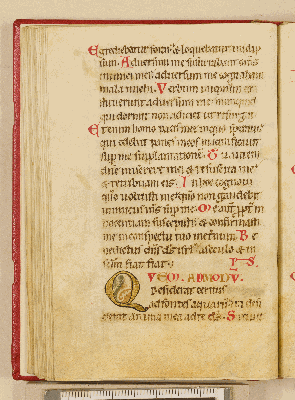 Egrediebatur foras & loquebatur in idip
sum. Adversum me susurrabant omnes
inimici mei: adversum me cogitabant
mala michi. Verbum iniquum con
stituerunt adversum me: numquid
qui dormit non adiciet ut resurgat.
Etenim homo pacis mee in quo speravi:
qui edebat panes meos magnificavit
sup me supplantatione. Tu autem
dne miserere mei & resuscita me:
& retribuam eis. In hoc cognovi
quo voluisti me: quo non gaudebit
inimicus meus sup me. Me aut ppt in
nocentiam suscepisti: & confirmasti
me in conspectu tuo in eternum. Be
nedictus dns ds isrl a seculo & in
sclm fiat fiat. PS.
QUEMADMODU.
desiderat cervus
ad fontes aquarum: ita desi
derat anima mea ad te ds. Sitivit